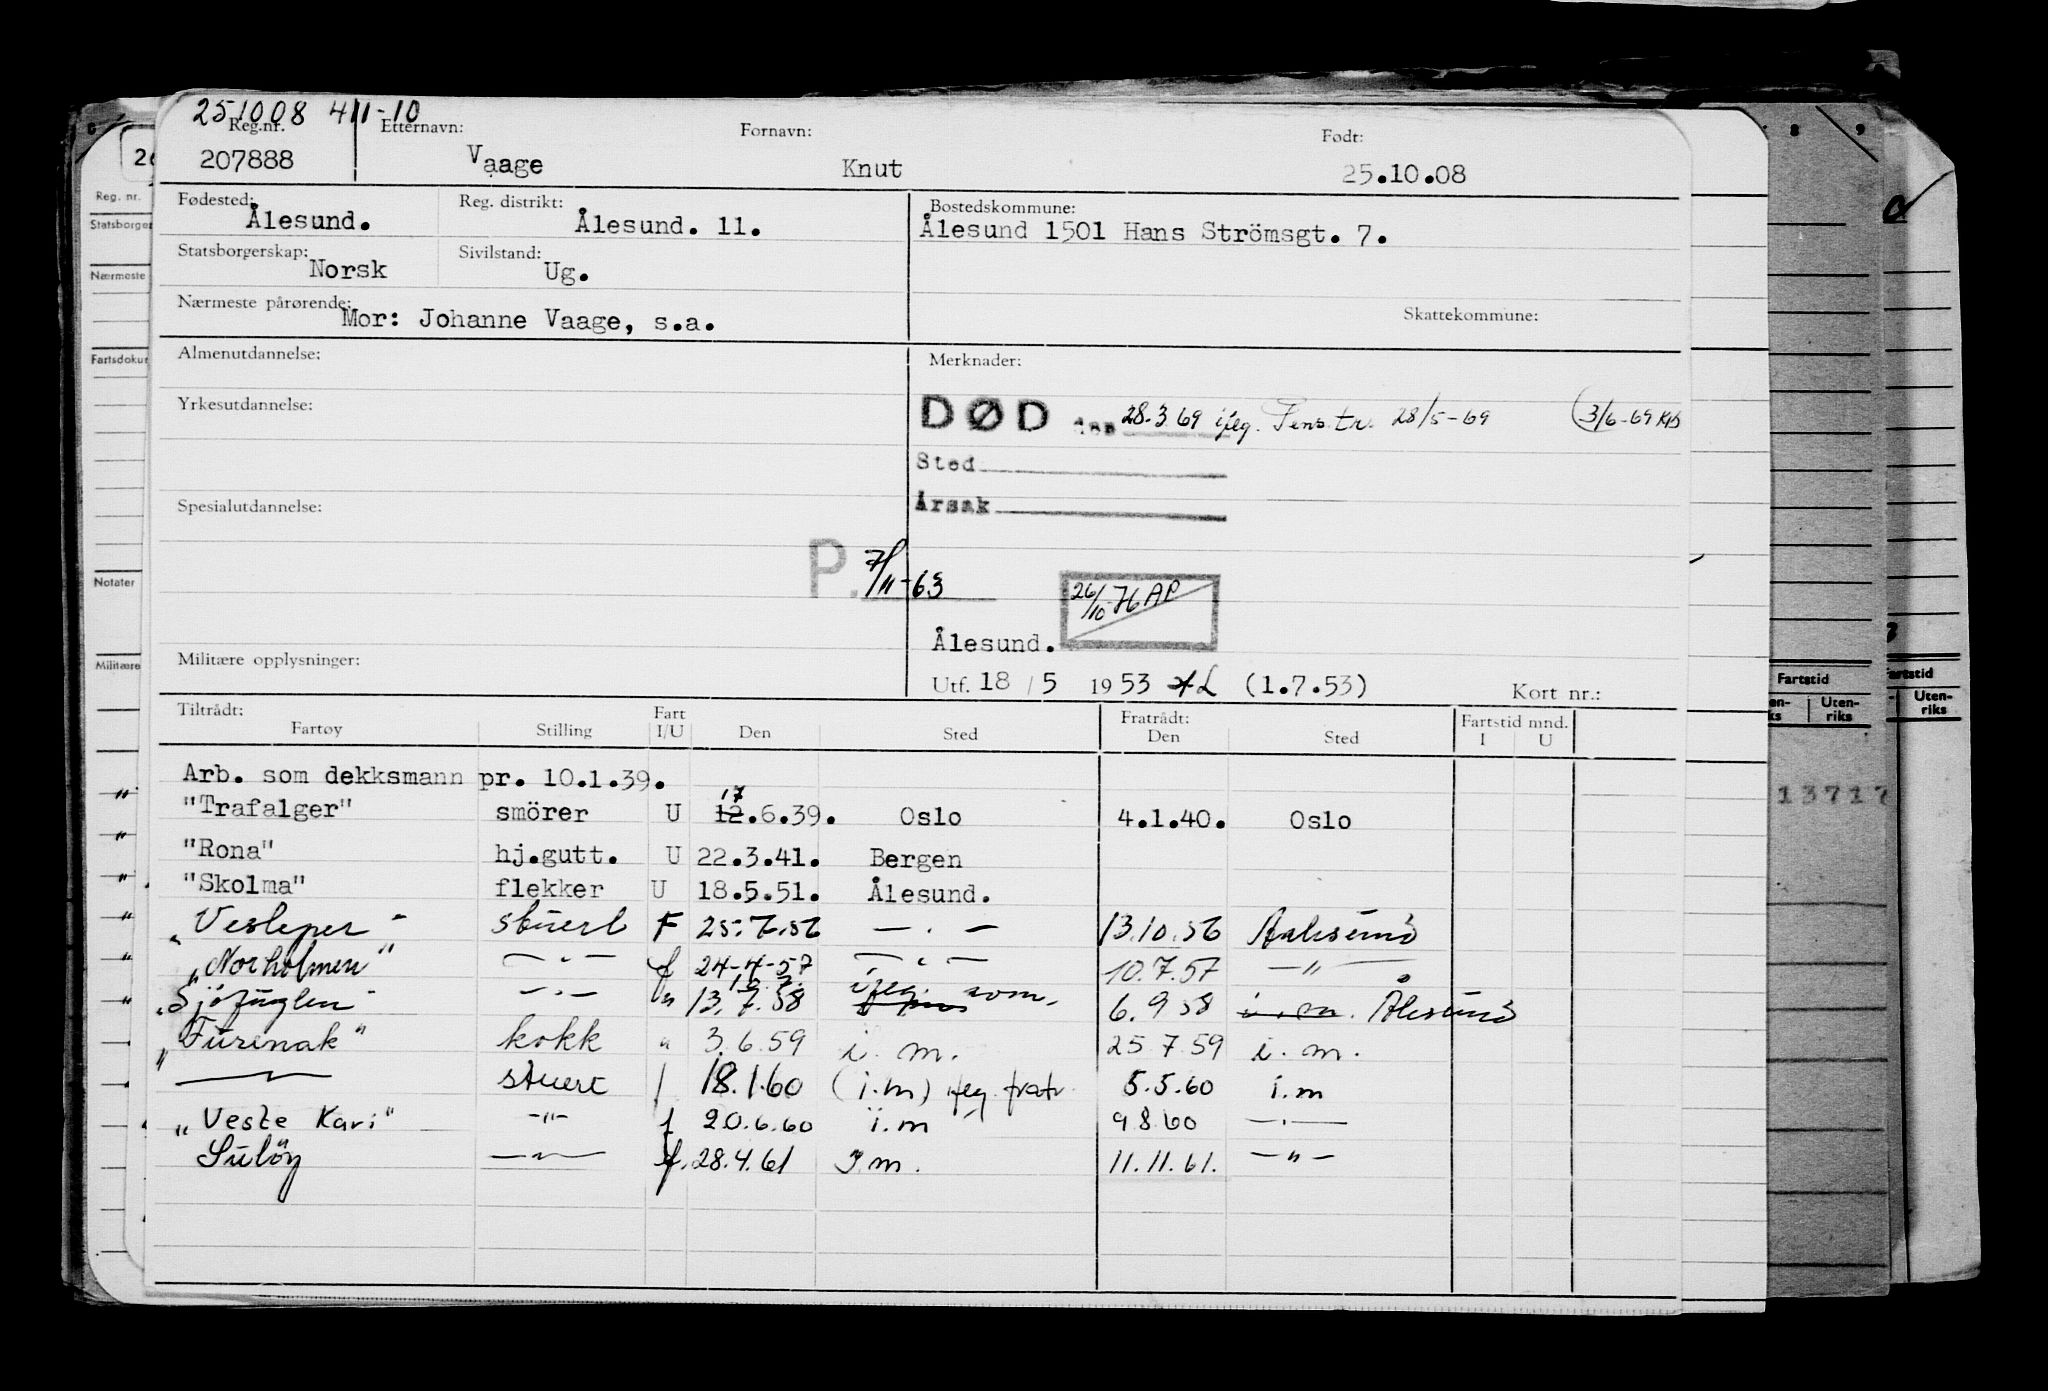 251008 411-10
Reg.nr. Etternavn: Fornavn: Født:
207888 Vaage Knut 25.10.08
Fødested: Ålesund. Reg. distrikt: Ålesund. 11. Bostedskommune:
Ålesund 1501 Hans Strömsgt. 7.
Statsborgerskap: Norsk Sivilstand: Ug.
Nærmeste pårørende: Mor: Johanne Vaage, s.a. Skattekommune:
Almenutdannelse: Merknader:
Yrkesutdannelse: DØD den 28.3.69 ifleg. Pens.tr. 28/5-69 3/6-69
Sted
Årsak
Spesialutdannelse:
P. 7/11-63
26/10-76 AP
Ålesund.
Militære opplysninger: Utf. 18/5 1953 (1.7.53) Kort nr.:
Tiltrådt: Fart Fratrådt: Fartstid mnd.
Fartøy Stilling I/U Den Sted Den Sted I U
Arb. som dekksmann pr. 10.1.39.
17
"Trafalger" smörer U 12.6.39. Oslo 4.1.40. Oslo
"Rona" hj.gutt. U 22.3.41. Bergen
"Skolma" flekker U 18.5.51. Ålesund.
"Vesleper" stuert F 25.7.56 — . — 13.10.56 Aalesund
"Norholmen" — " — f 24-4-57 — " — 10.7.57 — " —
"Sjøfuglen" — " — " 13.7.58 ifleg. 6.9 58 i.m. Ålesund
"Furenak" kokk " 3.6.59 i.m. 25.7.59 i.m.
— " — stuert f 18.1.60 (i.m) ifleg fratr. 5.5.60 i.m
"Veste Kari" -"- f 20.6.60 i.m 9.8.60 — " —
Suløy — " — f. 28.4.61 I.m. 11.11.61. — " —
Reg. nr.
Statsborger
Nærmeste
Fartsdoku
Notater
Militære
8 9
Fartstid
Uten-
riks
Uten-
riks
13717